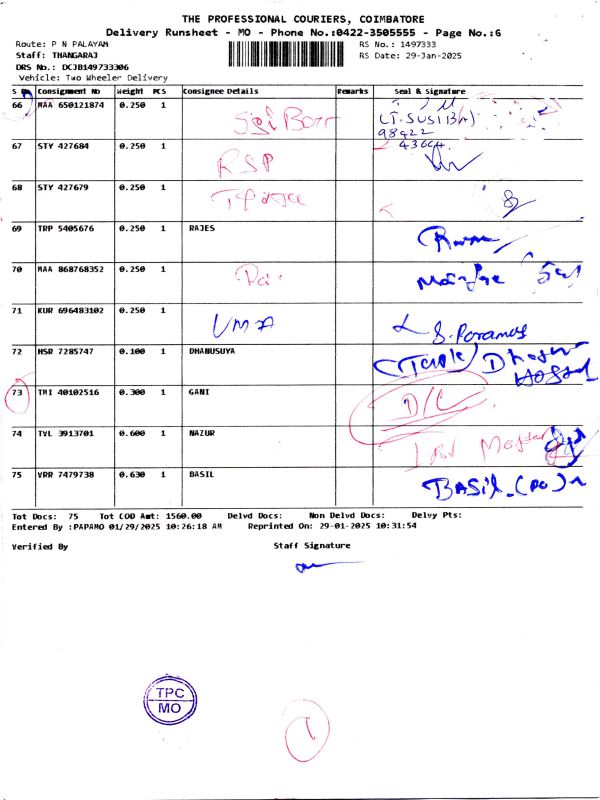 THE PROFESSIONAL COURIERS, COIMBATORE
Delivery Runsheet - MO - Phone No.:0422-3505555 - Page No.:6
Route: P N PALAYAM
RS No.: 1497333
Staff: THANGARAJ
RS Date: 29-Jan-2025
DRS No.: DCJB149733306
Vehicle: Two Wheeler Delivery
S Consignment No Weight PCS Consignee Details Remarks Seal & Signature
66 MAA 650121874 0.250 1
(T. SUSIBA)
98422
43664
67 STY 427684 0.250 1 RSP
68 STY 427679 0.250 1
69 TRP 5405676 0.250 1 RAJES
70 MAA 868768352 0.250 1
71 KUR 696483102 0.250 1 UMA
72 HSR 7285747 0.100 1 DHANUSUYA
73 TRI 40102516 0.300 1 GANI D/C
74 TVL 3913701 0.600 1 NAZUR
75 VRR 7479738 0.630 1 BASIL BASIL
Tot Docs: 75 Tot COD Amt: 1560.00 Delvd Docs: Non Delvd Docs: Delvy Pts:
Entered By :PAPAMO 01/29/2025 10:26:18 AM Reprinted On: 29-01-2025 10:31:54
Verified By Staff Signature
TPC
MO
1